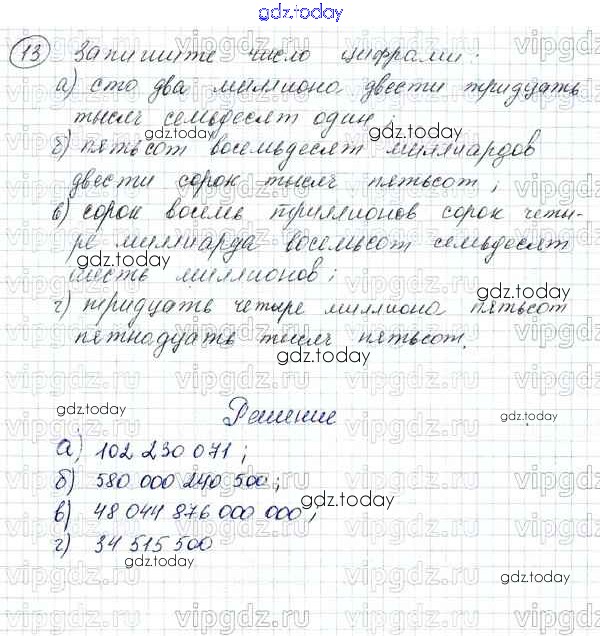 gdz.today
13 Запишите число цифрами:
а) сто два миллиона двести тридцать
тысяч семьдесят один;
gdz.today
б) пятьсот восемьдесят миллиардов
двести сорок тысяч пятьсот;
gdz.today
в) сорок восемь триллионов сорок четы-
ре миллиарда восемьсот семьдесят
gdz.today
шесть миллионов;
gdz.today
г) тридцать четыре миллиона пятьсот
пятнадцать тысяч пятьсот.
gdz.today
gdz.today
Решение
а) 102 230 071;
gdz.today
б) 580 000 240 500;
gdz.today
в) 48 044 876 000 000;
г) 34 515 500
gdz.today
vipgdz.ru